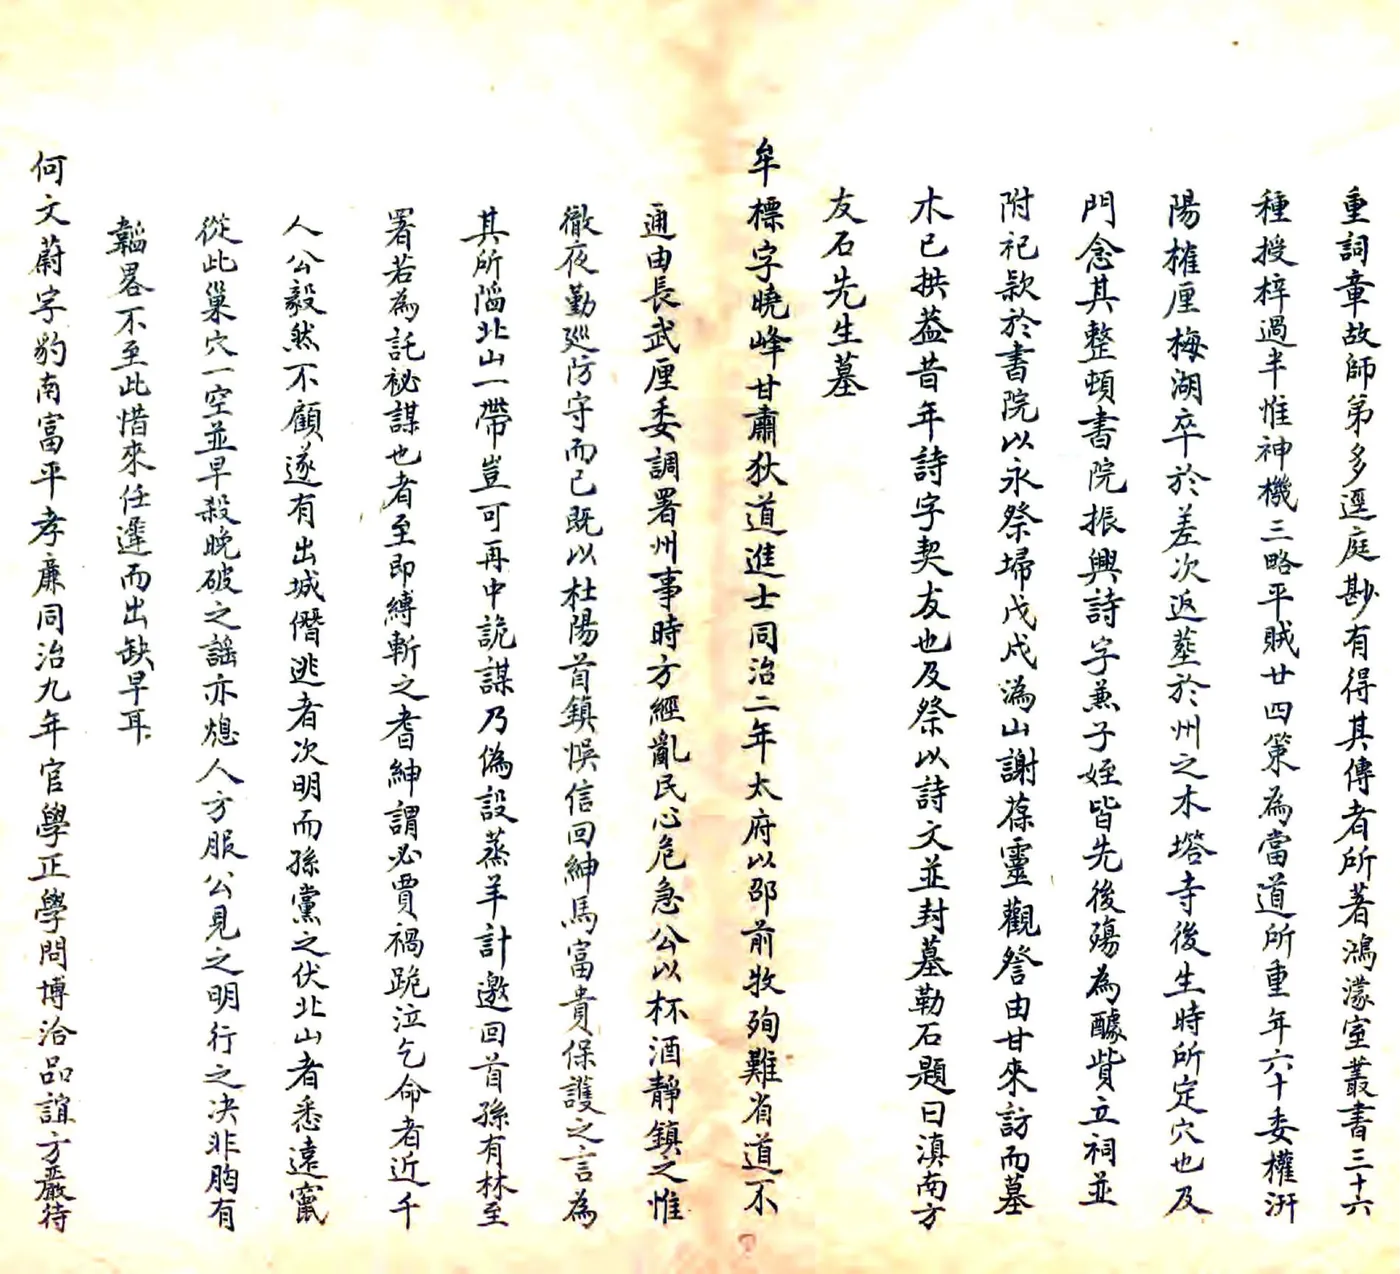 重詞章故師弟多逕庭尠有得其傳者所著鴻濛室叢書三十六
種授梓過半惟神機三略平賊廿四策為當道所重年六十委權汧
陽榷厘梅湖卒於差次返塟於州之木塔寺後生時所定穴也及
門念其整頓書院振興詩字兼子姪皆先後殤為醵貲立祠並
附祀款於書院以永祭埽戊戌溈山謝葆靈觀詧由甘來訪而墓
木已拱葢昔年詩字契友也及祭以詩文並封墓勒石題曰滇南方
友石先生墓
牟標字曉峰甘肅狄道進士同治二年太府以邵前牧殉難省道不
通由長武厘委調署州事時方經亂民心危急公以杯酒靜鎮之惟
徹夜勤廵防守而已既以杜陽首鎮悞信回紳馬富貴保護之言為
其所陷北山一帶豈可再中詭謀乃偽設蒸羊計邀回首孫有林至
署若為託祕謀也者至即縛斬之耆紳謂必賈禍跪泣乞命者近千
人公毅然不顧遂有出城僭逃者次明而孫黨之伏北山者悉遠竄
從此巢穴一空並早殺晚破之謠亦熄人方服公見之明行之决非胸有
韜畧不至此惜來任遲而出缺早耳
何文蔚字豹南富平孝亷同治九年官學正學問博洽品誼方嚴待